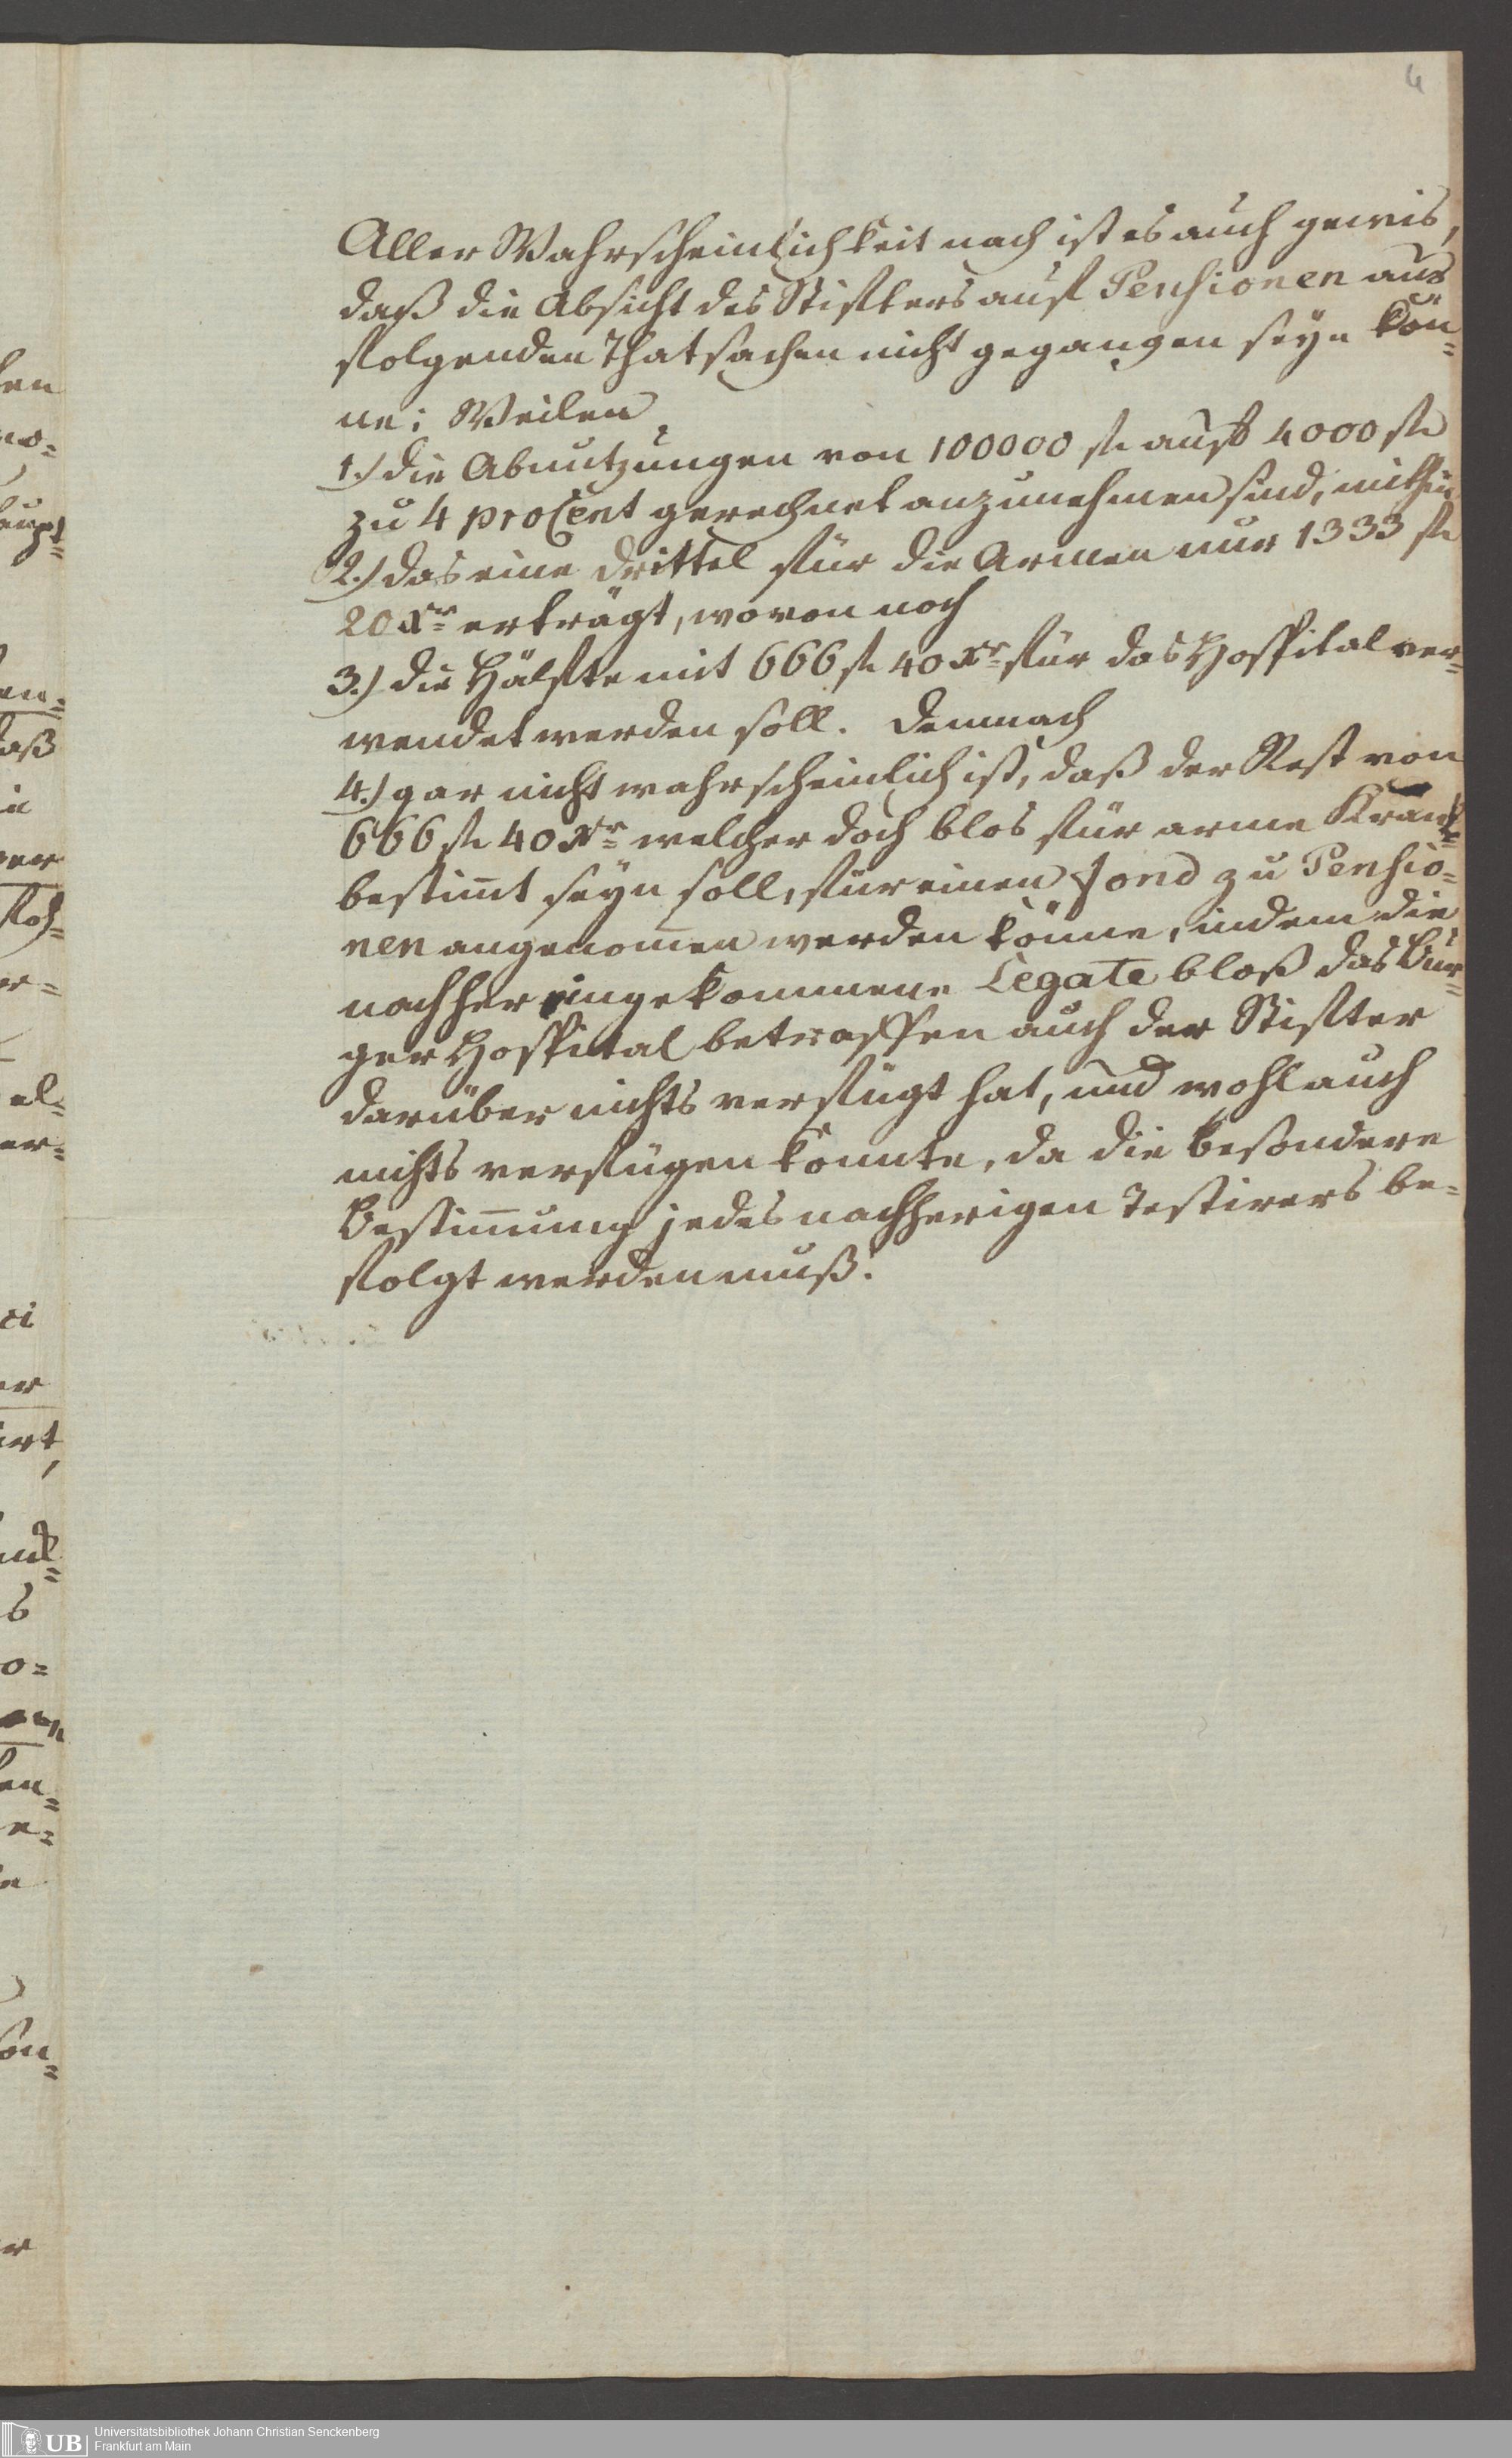 4
Aller Wahrscheinlichkeit nach ist es auch gewis,
daß die Absicht des Stifters auf Pensionen aus
folgenden Thatsachen nicht gegangen seyn kön=
ne; Weilen
1.) die Abnutzungen von 100000 fl. auf 4000 fl.
zu 4 proCent gerechnet anzunehmen sind, mithin
2.) das eine Drittel für die Armen nur 1333 fl.
20 Xr. erträgt, wovon noch
3.) die Hälfte mit 666 fl. 40 Xr. für das Hospital ver=
wendet werden soll. Demnach
4.) gar nicht wahrscheinlich ist, daß der Rest von
666 fl. 40 Xr. welcher doch blos für arme Kranke
bestimt seyn soll, für einen Fond zu Pensio=
nen angenomen werden könne, indem die
nachher eingekommene Legate bloß das Bür=
ger Hospital betraffen auch der Stifter
darüber nichts verfügt hat, und wohl auch
nichts verfügen konnte, da die besondere
Bestimung jedes nachherigen Testirers be=
folgt werden muß.
UB
Universitätsbibliothek Johann Christian Senckenberg
Frankfurt am Main